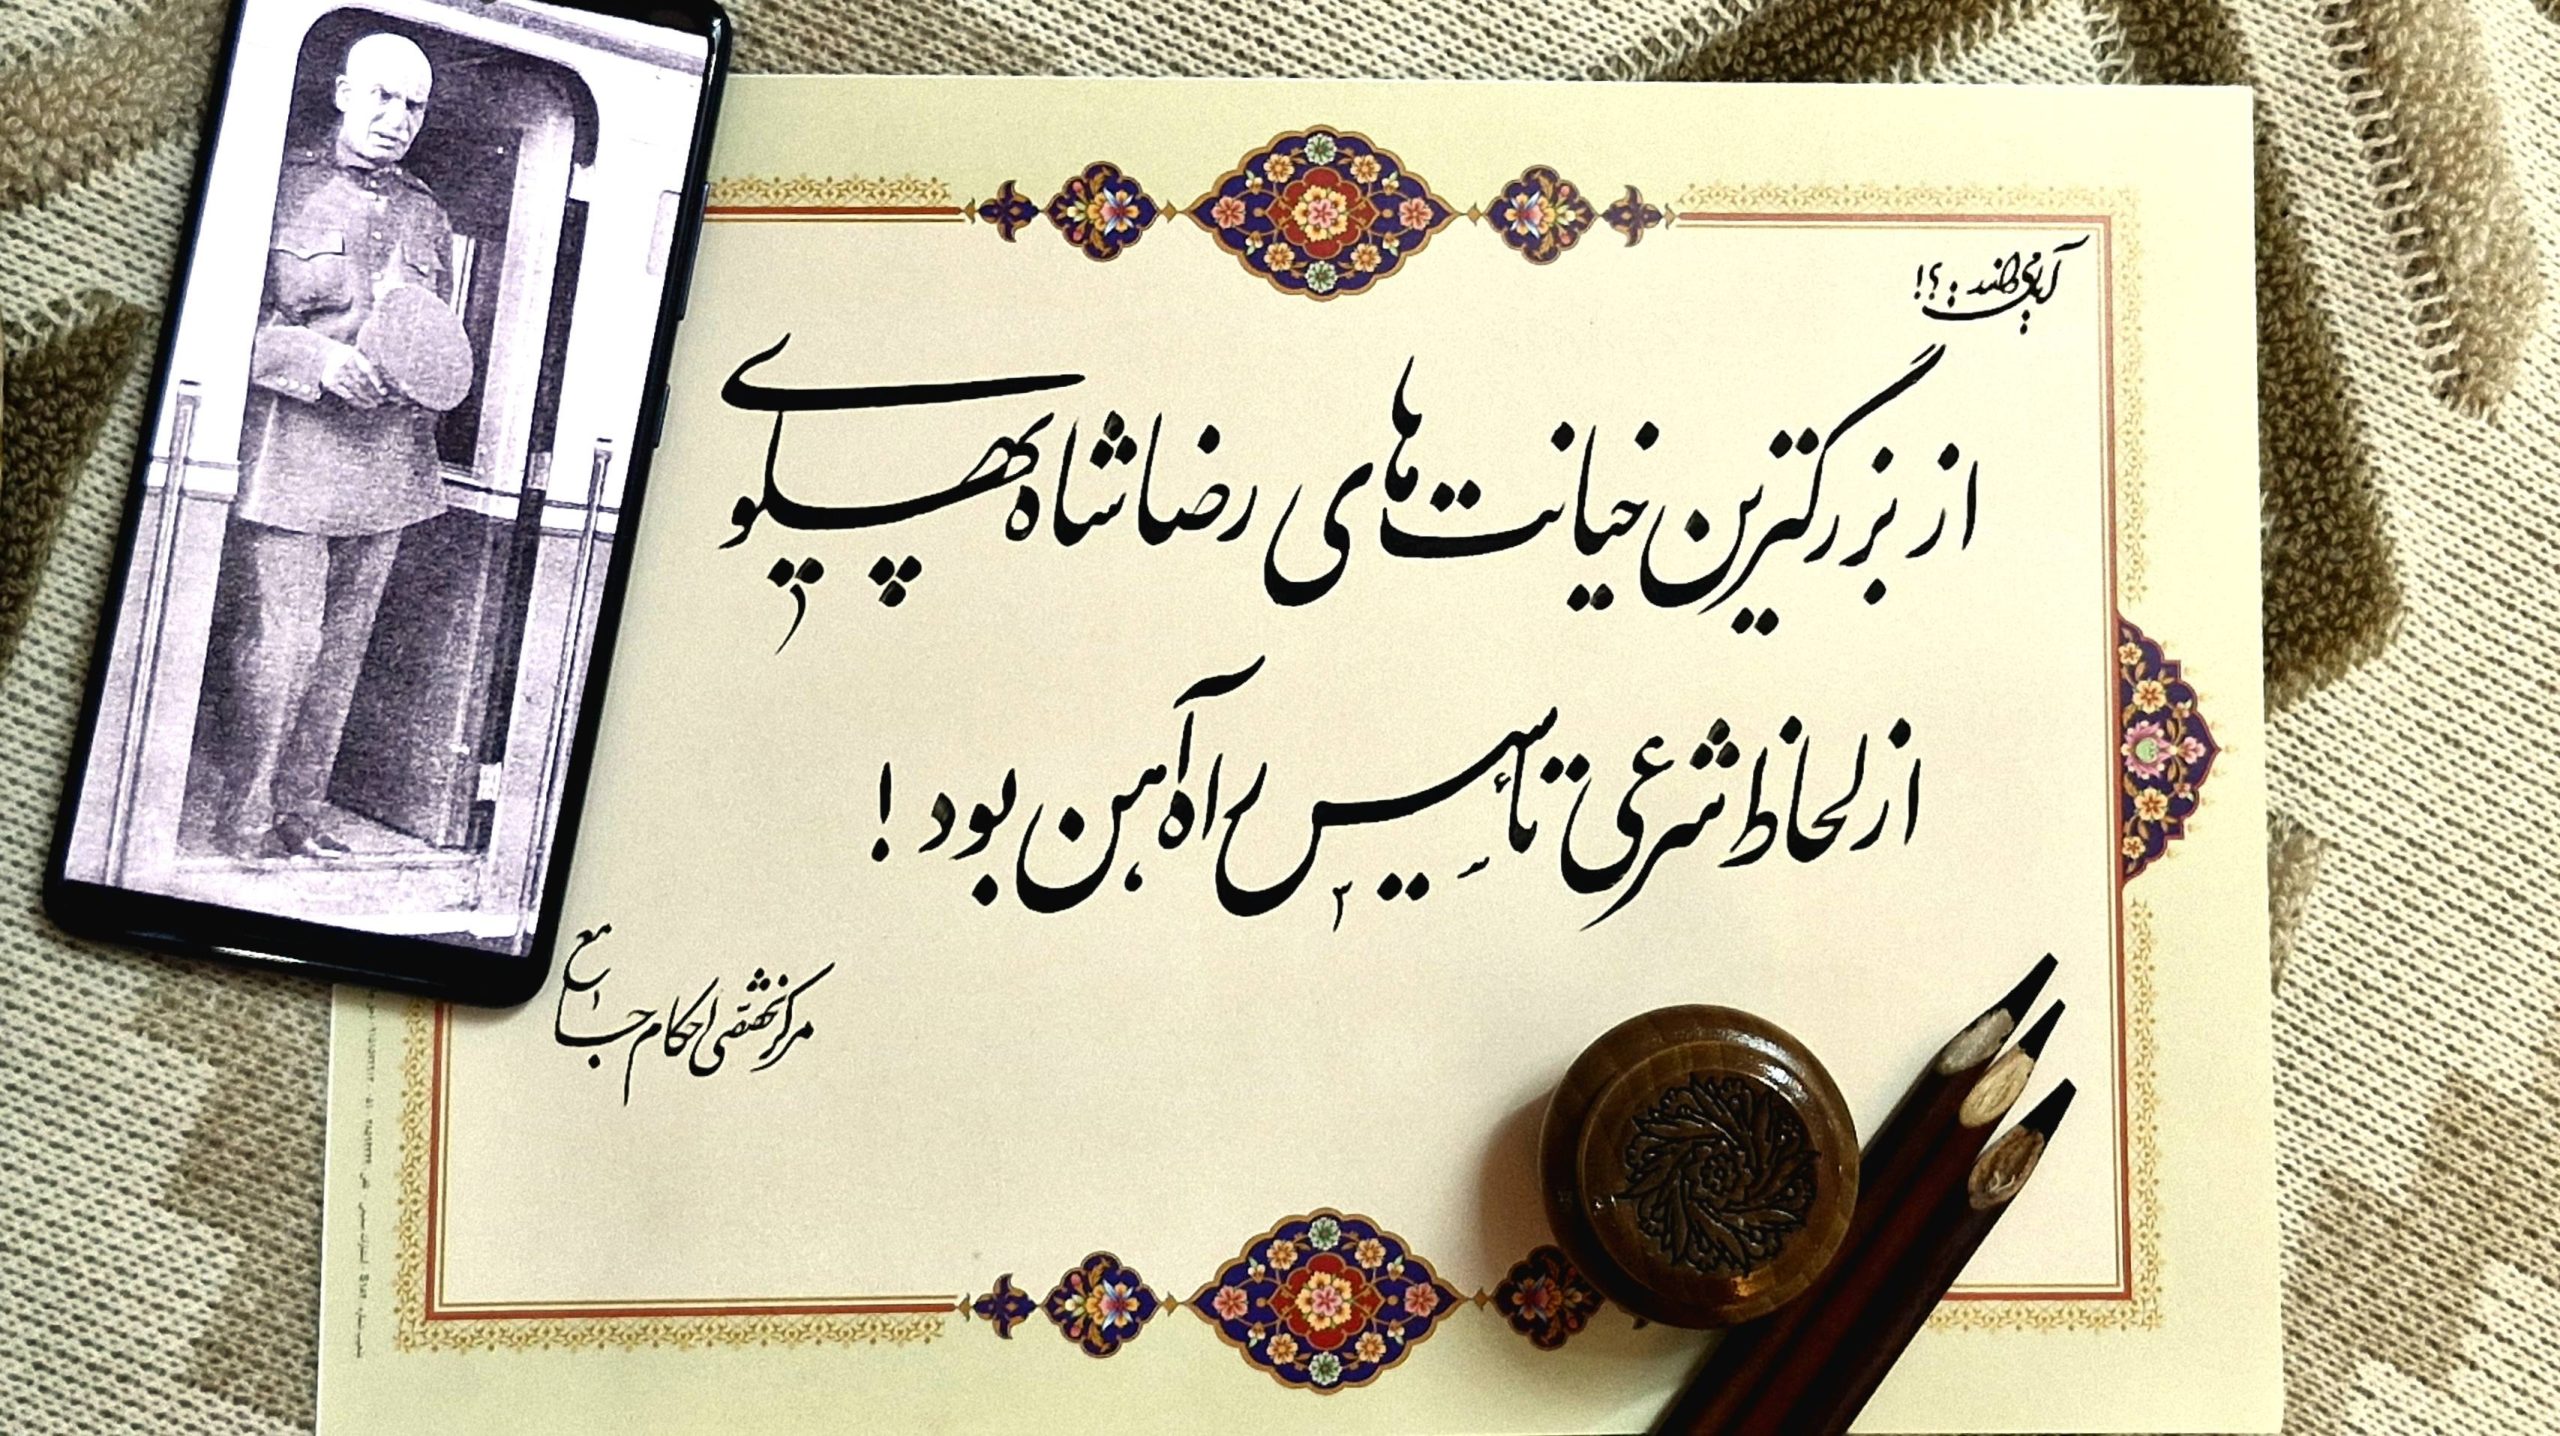 آیا می‌دانید؟!
از بزرگترین خیانت‌های رضا شاه پهلوی
از لحاظ شرعی تأسیس راه آهن بود!
مرکز تخصّصی احکام جامع